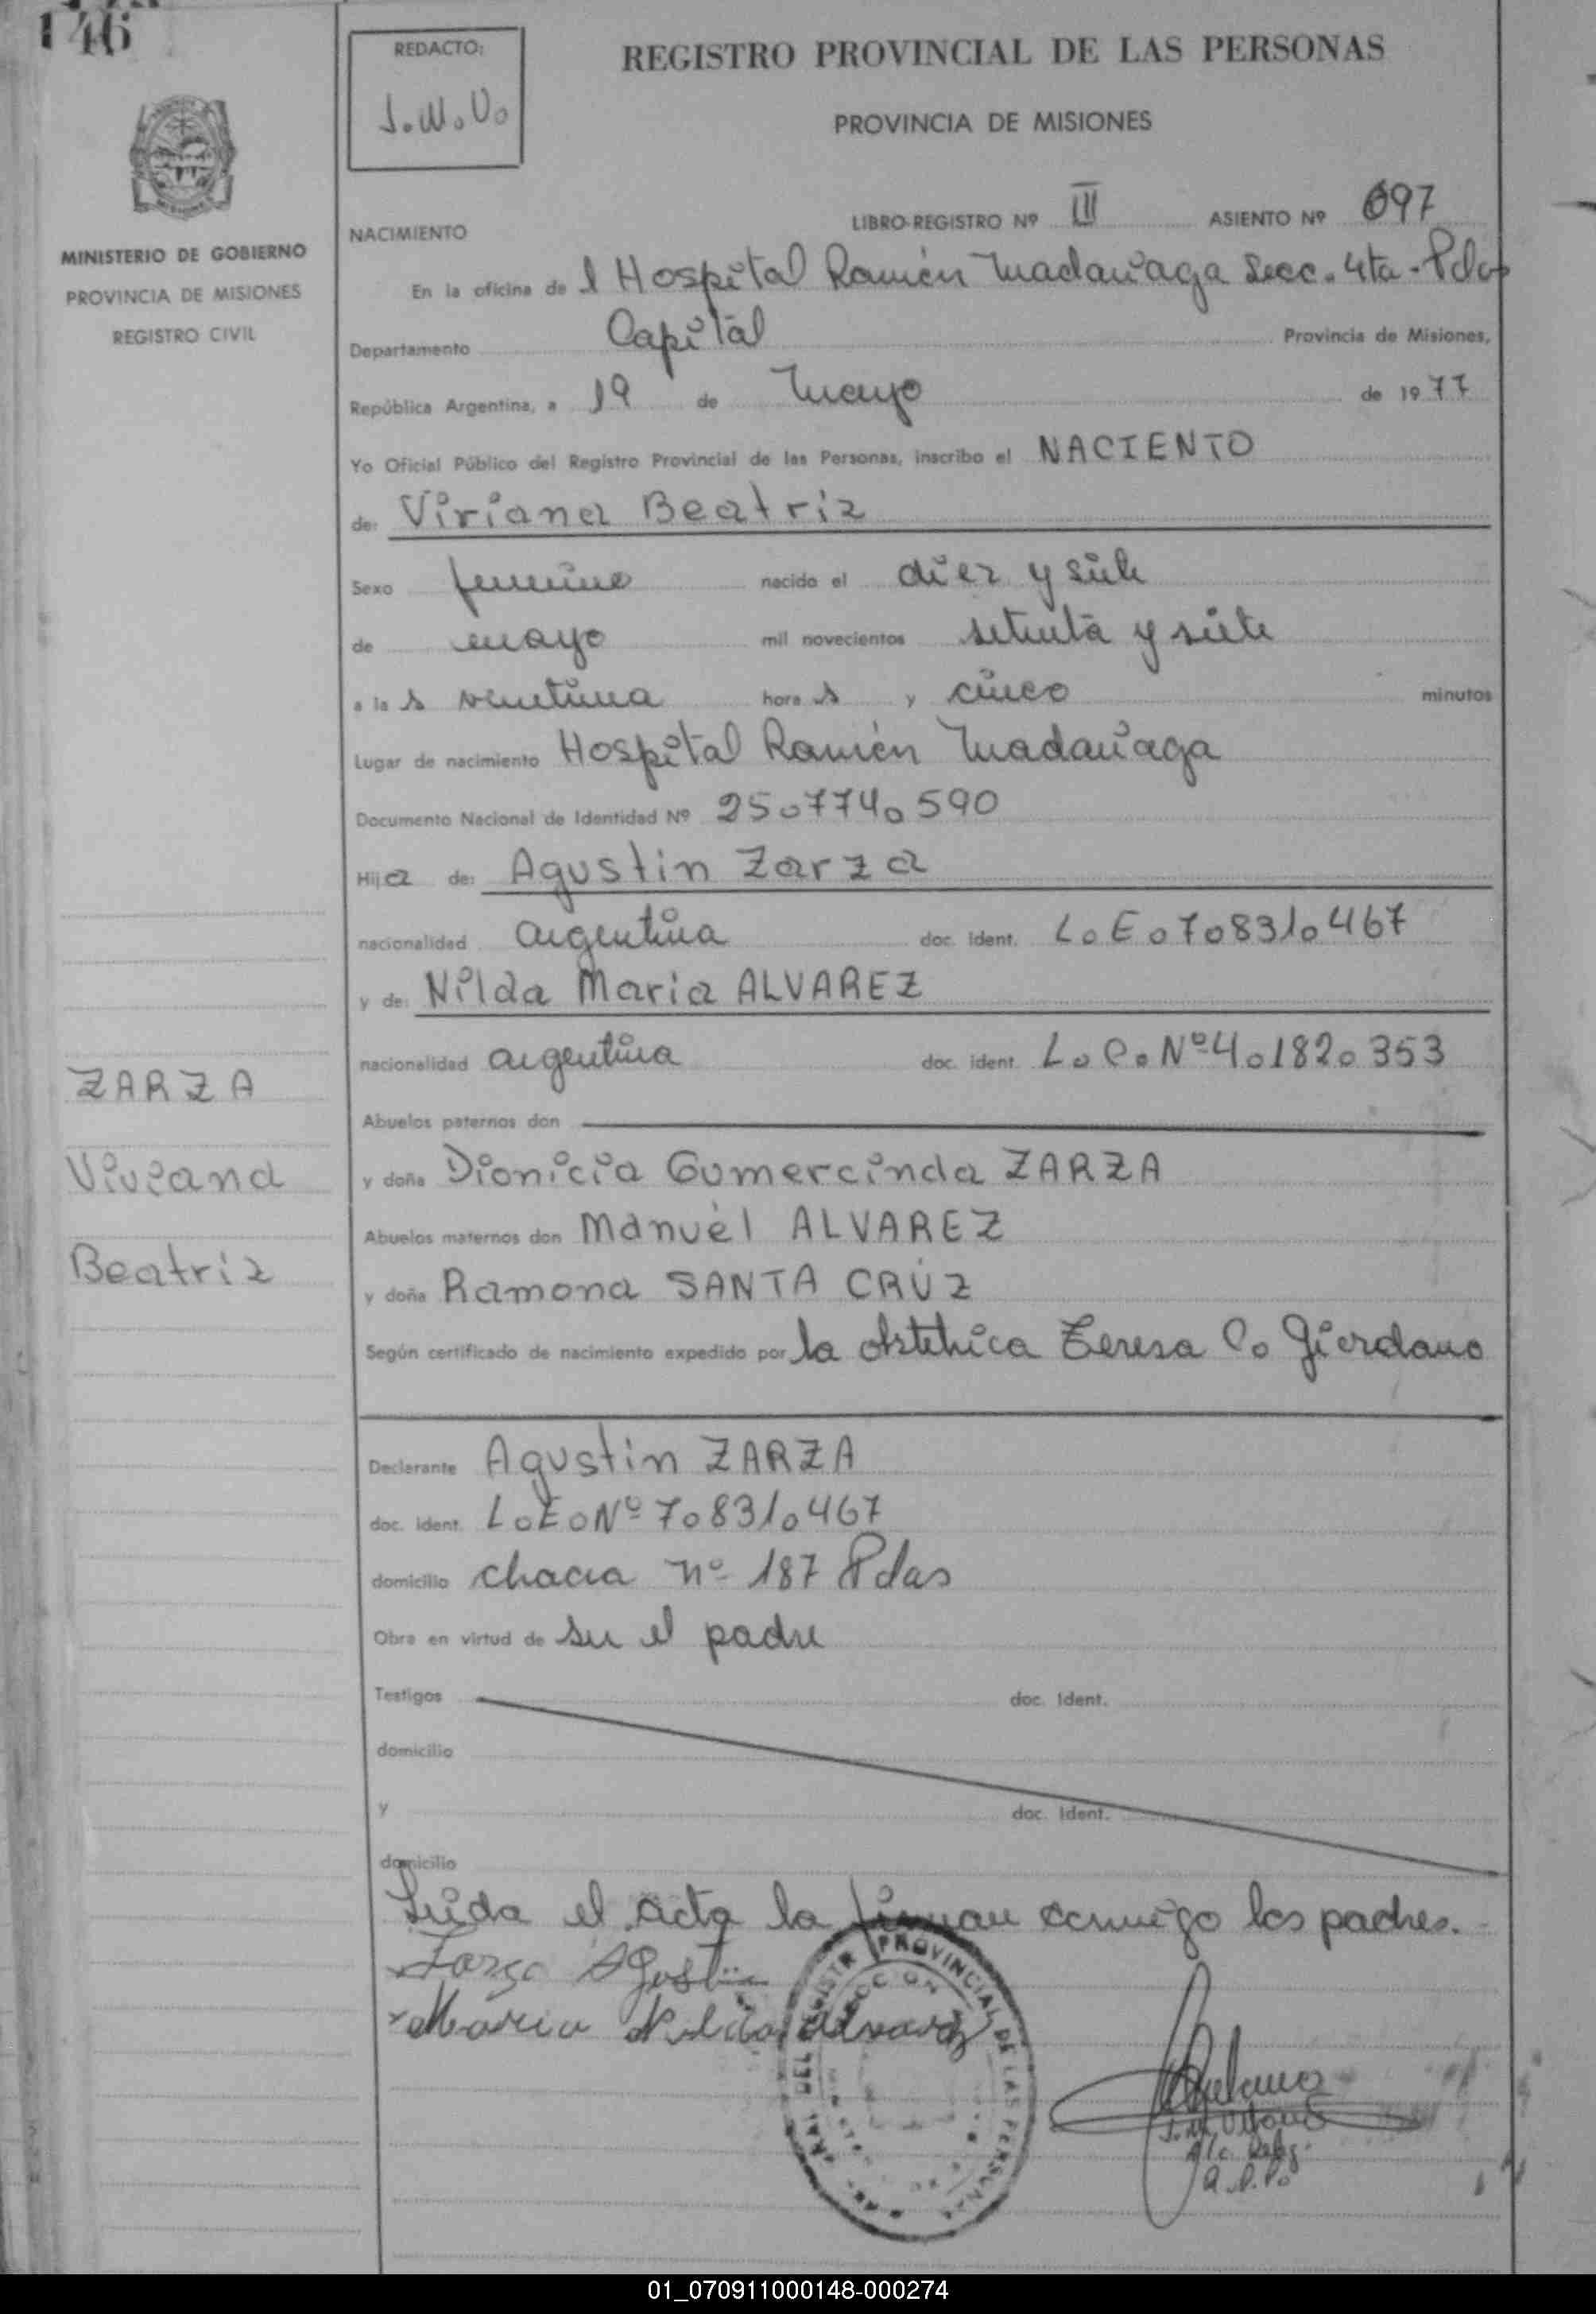 146
REDACTO:
J.M.V.
REGISTRO PROVINCIAL DE LAS PERSONAS
PROVINCIA DE MISIONES
MINISTERIO DE GOBIERNO
PROVINCIA DE MISIONES
REGISTRO CIVIL
NACIMIENTO
LIBRO-REGISTRO Nº III ASIENTO Nº 697
En la oficina de l Hospital Ramón Madariaga Secc. 4ta - Pdas
Departamento Capital Provincia de Misiones,
República Argentina, a 19 de Mayo de 1977
Yo Oficial Público del Registro Provincial de las Personas, inscribo el NACIENTO
de: Viviana Beatriz
Sexo femenino nacido el diez y siete
de mayo mil novecientos setenta y siete
a la s veintiuna hora s y cinco minutos
Lugar de nacimiento Hospital Ramón Madariaga
Documento Nacional de Identidad Nº 25.774.590
Hija de: Agustin Zarza
nacionalidad argentina doc. ident. L.E.7.831.467
y de: Nilda Maria ALVAREZ
nacionalidad argentina doc. ident. L.C.Nº4.182.353
Abuelos paternos don
y doña Dionicia Gumercinda ZARZA
Abuelos maternos don Manuel ALVAREZ
y doña Ramona SANTA CRUZ
Según certificado de nacimiento expedido por la obstetrica Teresa C. Giordano
ZARZA
Viviana
Beatriz
Declarante Agustin ZARZA
doc. ident. L.E.Nº 7.831.467
domicilio chacra nº 187 Pdas
Obra en virtud de ser el padre
Testigos doc. Ident.
domicilio
y doc. Ident.
domicilio
Leida el acta la firman conmigo los padres.
Zarza Agustin
Maria Nilda Alvarez
DEL REGISTR PROVINCIAL DE LAS PERSONAS
A/c. Deleg.
01_070911000148-000274